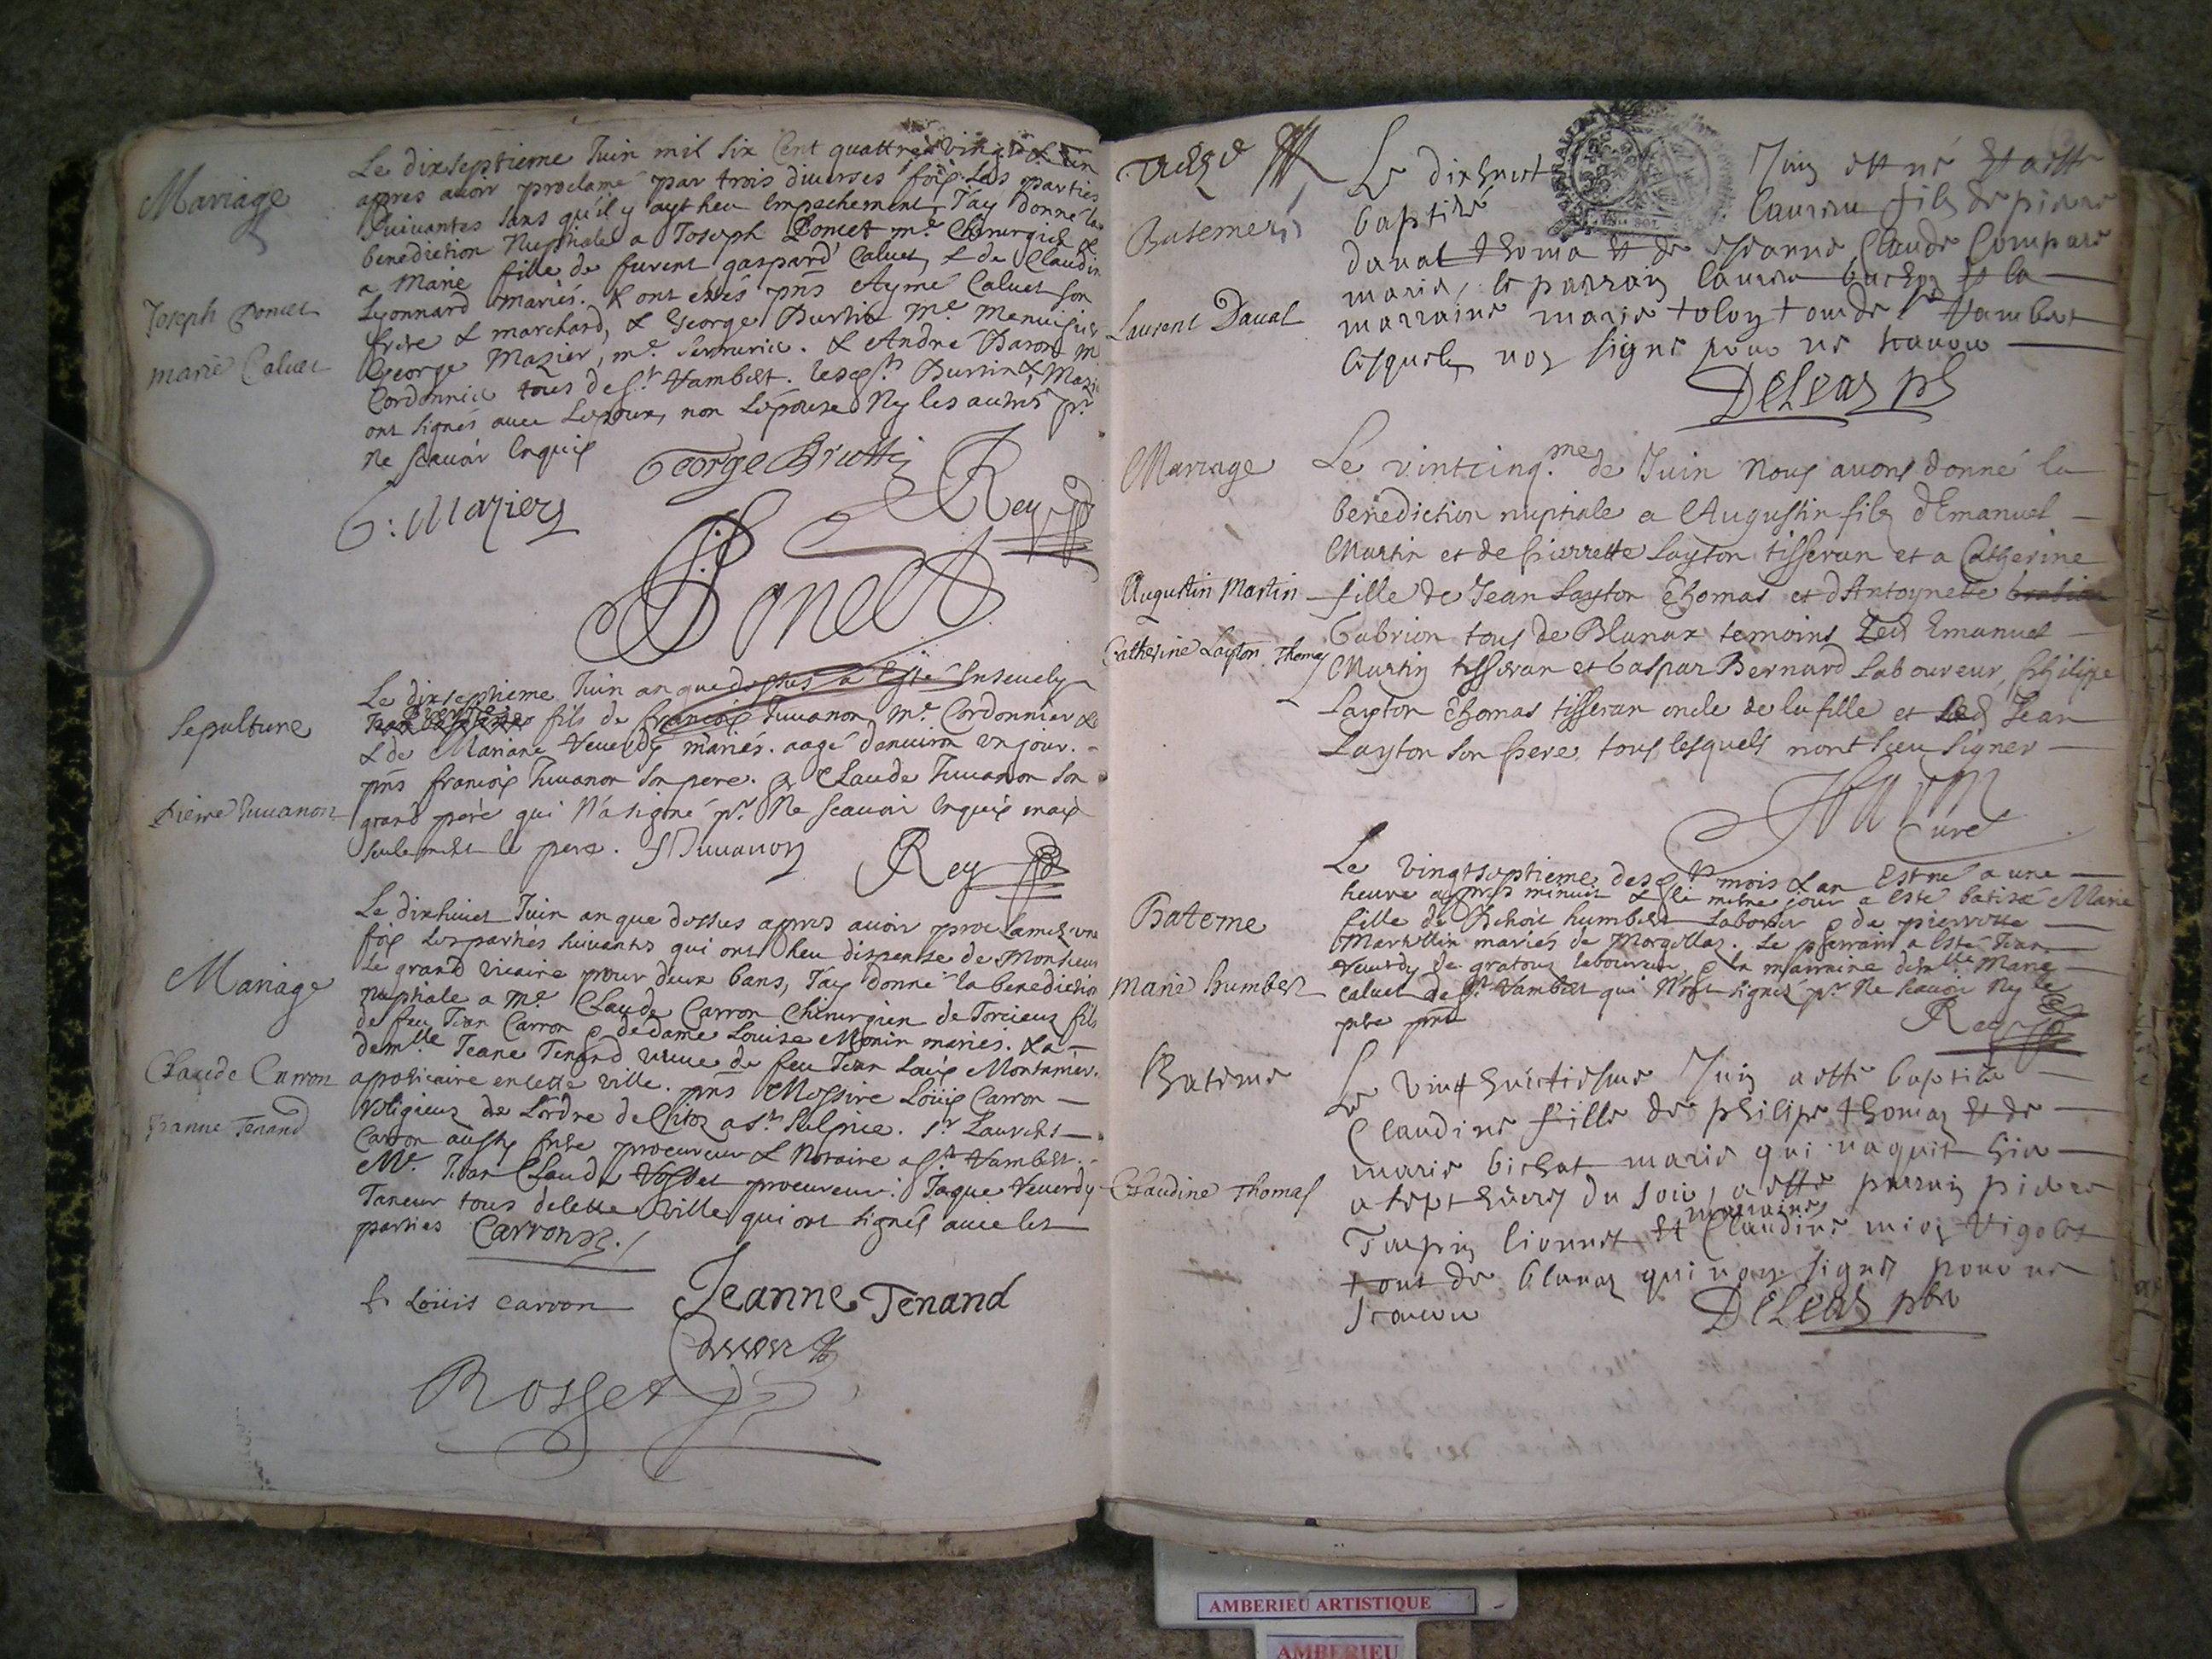 Mariage
Le dixseptieme Juin mil six Cent quattre vingt &
apres auoir proclamé par trois diuerses fois Les parties
suiuantes sans qu'il y ayt heu Empechement J'ay donné la
benediction Nuptiale a Joseph Poncet me. Chirurgien &
a Marie fille de furent gaspard Caluet & de Claudine
Lyonnard mariés. & ont estés pns Aymé Caluet son
frere & marchand, & George Burtin Me Menuisier
George Mazier, me. serrurier. & André Baron M
Cordonnier tous de St Rambert. lesqls Burtin & Mazier
ont signés auec L'espoux, non L'épouse Ny les autres pr
Ne scauoir Enquis
Joseph Poncet
marie Caluet
George Brutti
Rey
G: Maziers
J Ponect
Sepulture
Le dixseptieme Juin an que dessus a Esté Enseuely
fils de francois Juuanon Me. Cordonnier &
& de Mariane Reuerdy mariés. aagé d'enuiron un jour.
pns francois Juuanon son pere. & Claude Juuanon son
grand pere qui N'a signé pr. Ne scauoir Enquis mais
seulement le pere. f Juuanon
Rey
pierre Juuanon
Mariage
Le dixhuict Juin an que dessus apres auoir proclamés une
fois Les parties suiuantes qui ont heu dispense de Monsieur
Le grand Vicaire pour deux bans, J'ay donné la benediction
nuptiale a Me. Claude Carron Chirurgien de Torcieux fils
de feu Jean Carron & de dame Louise Monin mariés. & a
demlle Jeane Tenand veuue de feu Jean Louis Montanier
apoticaire en cette ville. pns Messire Loüis Carron
Religieux de L'ordre de Citox a St. Sulpice. Sr Laurens
Carron aussy frere procureur & Notaire a St Rambert.
Me. Jean Claude Rosset procureur. Jaque Reuerdy
Taneur tous de cette Ville qui ont signés auec les
parties Carron
Claude Carron
Jeanne Tenand
f. Loüis carron
Jeanne Tenand
Carron
Rosset
Batemes
Le dixhuict Juin est né & a esté
baptisé lauren fils de pierre
daual thoma & de Jeanne Claude Compare
marie, le parrain lauren & la
marraine marie tous de St Rambert
lesquels non signe pour ne scauoir
Deleas
Laurent Daual
Mariage
Le vintcinqme de Juin Nous auons donné la
benediction nuptiale a Augustin fils d'Emanuel
Martin et de pierrette Layton tisseran et a Catherine
fille de Jean Layton Thomas et d'Antoynette
Gabrion tous de Blanaz temoins Emanuel
Martin tisseran et Gaspar Bernard Laboureur, philipe
Layton Thomas tisseran oncle de la fille et Jean
Layton son frere tous lesquels n'ont sceu signer
Curé
Augustin Martin
Catherine Layton Thomas
Bateme
Le Vingtseptieme desds mois & an Est né a une
heure apres minuit & le mesme jour a esté batisé Marie
fille de Benoit humbert Laboureur & de pierrette
Martellin mariés de Morgellaz. Le pairrain a Esté Jean
Reuerdy de gratoux laboureur & la marraine demlle Marie
caluet de St Rambert qui N'ont signés pr Ne scauoir Ny le
pere pns
Rey
Marie humbert
Bateme
Le vint huictiesme Juin a esté baptisé
Claudine fille de philipe thomas & de
marie bichat marie qui naquit hier
a sept hures du soir, a esté parrain pierre
marraine
Jacpin lionnet & Claudine
tous de blanaz qui non signé pour ne
scauoir
Deleas pbre
Claudine Thomas
AMBERIEU ARTISTIQUE
AMBERIEU